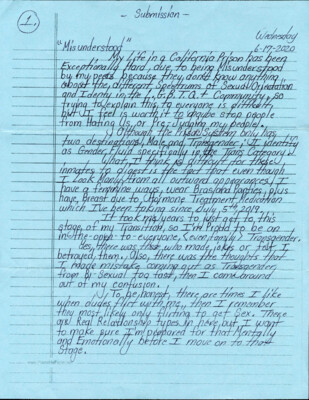 1.
- Submission -
Wednesday
6-17-2020
"Misunderstood"
My life in a California Prison has been
Exceptionally Hard, due to being Misunderstood
by my peers because they don't know anything
about the different Spectrums of Sexual Orientation
and Identity in the L.G.B.T.Q.I.A.+ Community, so
trying to explain this to everyone is difficult,
but I feel is worth it to maybe stop people
from Hating Us, or Pre-Judging my people.
Although the Prison System only has
two destinations, Male and Transgender, I Identity
as Gender Fluid specifically in the Trans Category.
What I think is difficult for these
inmates to digest is the fact that even though
I Look Manly from all outward appearances, I
have a feminine ways, wear Bras and Panties, plus
have Breast due to Hormone Treatment Medication
which I've been taking since July 5th, 2019.
It took me years to just get to this
stage of my Transition, so I'm Proud to be an
in-the-open-to-everyone, (even family) Transgender.
Yes, there was those who made jokes or felt I
betrayed them. Also, there was the thoughts that
I made mistake coming out as Transgender
from or Sexual too fast, then I came around
out of my confusion.
To be honest, there are times I like
when dudes flirt with me, then I remember
they most likely only flirting to get Sex. There
are Real Relationship types in here, but I want
to make sure I'm prepared for that Mentally
and Emotionally before I move on to that
Stage.